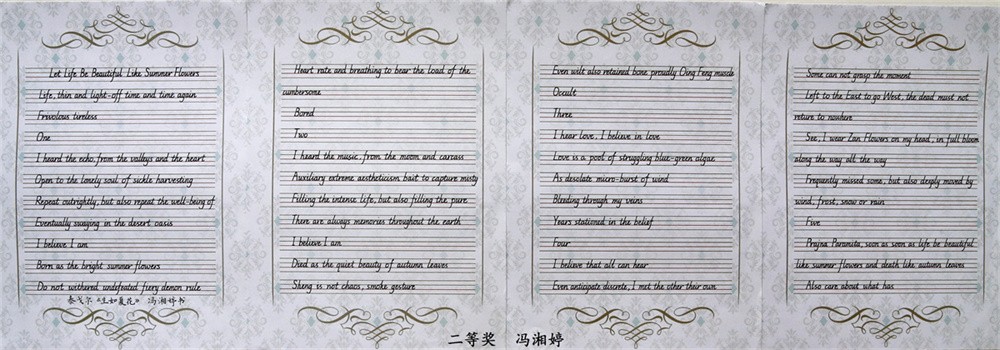 Let Life Be Beautiful Like Summer Flowers
Life, thin and light-off time and time again
Frivolous tireless
One
I heard the echo, from the valleys and the heart
Open to the lonely soul of sickle harvesting
Repeat outrightly, but also repeat the well-being of
Eventually swaying in the desert oasis
I believe I am
Born as the bright summer flowers
Do not withered undefeated fiery demon rule
泰戈尔《生如夏花》 冯湘婷书
Heart rate and breathing to bear the load of the
cumbersome
Bored
Two
I heard the music, from the moon and carcass
Auxiliary extreme aestheticism bait to capture misty
Filling the intense life, but also filling the pure
There are always memories throughout the earth
I believe I am
Died as the quiet beauty of autumn leaves
Sheng is not chaos, smoke gesture
Even wilt also retained bone proudly Qing Feng muscle
Occult
Three
I hear love, I believe in love
Love is a pool of struggling blue-green algae
As desolate micro-burst of wind
Bleeding through my veins
Years stationed in the belief
Four
I believe that all can hear
Even anticipate discrete, I met the other their own
Some can not grasp the moment
Left to the East to go West, the dead must not
return to nowhere
See, I wear Zan Flowers on my head, in full bloom
along the way all the way
Frequently missed some, but also deeply moved by
wind, frost, snow or rain
Five
Prajna Paramita, soon as soon as life be beautiful
like summer flowers and death like autumn leaves
Also care about what has
二等奖 冯湘婷